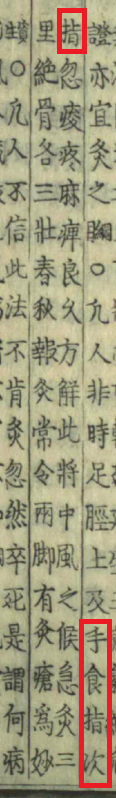 證亦宜灸之胸〇凡人非時足脛上及手食指次
指忽痠疼麻痺良久方解此將中風之候急灸三
里絕骨各三壯春秋報灸常令兩脚有灸瘡為妙
〇凡人不信此法不肯灸忽然卒死是謂何病